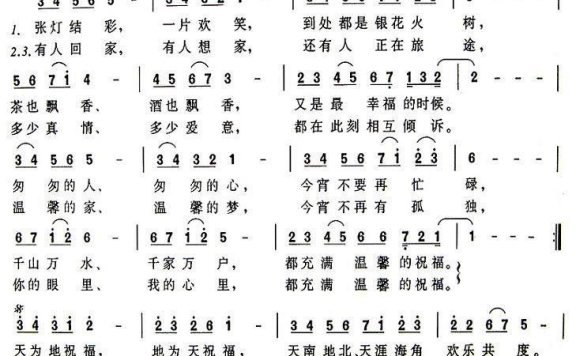 3 4 5 6 5 - | 3 4 3 2 1 - | 3 4 5 6 7 1 2 3 | 6 - - -
1. 张灯结 彩, 一片欢 笑, 到处都是银花火 树,
2.3. 有人回 家, 有人想 家, 还有人 正在旅 途,
5 6 7 1 - | 4 5 6 7 3 - | 2 3 4 5 6 7 1 3 2 | 2 - - -
茶也飘 香、 酒也飘 香, 又是最 幸福的时候。
多少真 情、 多少爱 意, 都在此刻相互倾 诉。
3 4 5 6 5 - | 3 4 3 2 1 - | 3 4 5 6 7 1 2 3 | 6 - - -
匆 匆的人、 匆 匆的心, 今宵不要再 忙 碌,
温 馨的家、 温 馨的梦, 今宵不再有 孤 独,
6 7 1 2 6 - | 6 7 1 2 5 - | 2 3 4 5 6 6 7 2 1 | 1 - - - :||
千山万 水、 千家万 户, 都充满 温馨的祝福。
你的眼 里、 我的心 里, 都充满 温馨的祝福。
3 4 3 1 2 - | 2 3 2 6 1 - | 3 4 3 1 2 3 1 6 | 2 2 6 7 5 -
天为地祝福, 地为天祝福, 天南地北、天涯海角 欢乐共 度。